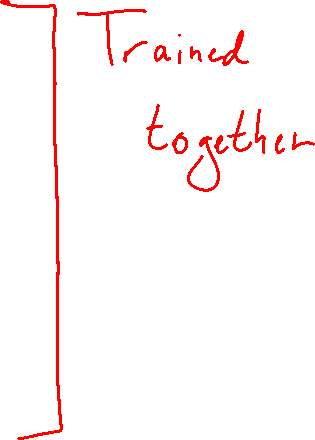 Trained
together